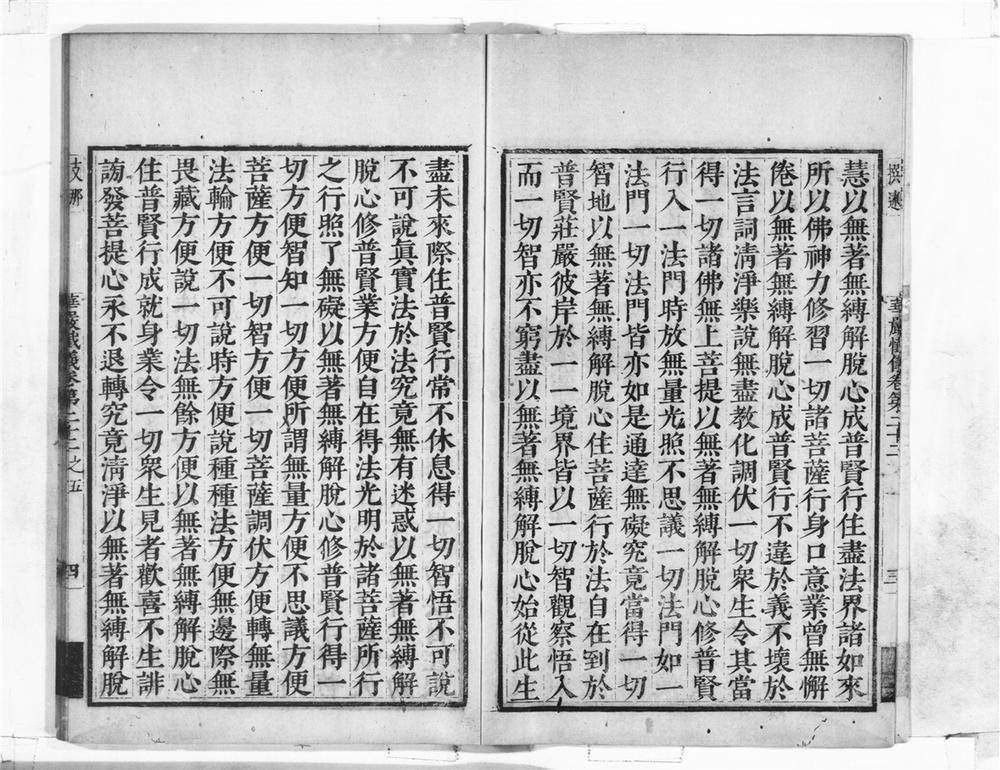 慧以無著無縛解脫心成普賢行住盡法界諸如來
所以佛神力修習一切諸菩薩行身口意業曾無懈
倦以無著無縛解脫心成普賢行不違於義不壞於
法言詞清淨樂說無盡教化調伏一切衆生令其當
得一切諸佛無上菩提以無著無縛解脫心修普賢
行入一法門時放無量光照不思議一切法門如一
法門一切法門皆亦如是通達無礙究竟當得一切
智地以無著無縛解脫心住菩薩行於法自在到於
普賢莊嚴彼岸於一一境界皆以一切智觀察悟入
而一切智亦不窮盡以無著無縛解脫心始從此生
盡未來際住普賢行常不休息得一切智悟不可說
不可說眞實法於法究竟無有迷惑以無著無縛解
脫心修普賢業方便自在得法光明於諸菩薩所行
之行照了無礙以無著無縛解脫心修普賢行得一
切方便智知一切方便所謂無量方便不思議方便
菩薩方便一切智方便一切菩薩調伏方便轉無量
法輪方便不可說時方便說種種法方便無邊際無
畏藏方便說一切法無餘方便以無著無縛解脫心
住普賢行成就身業令一切衆生見者歡喜不生誹
謗發菩提心永不退轉究竟清淨以無著無縛解脫
華嚴懺儀卷第二十二之五
四